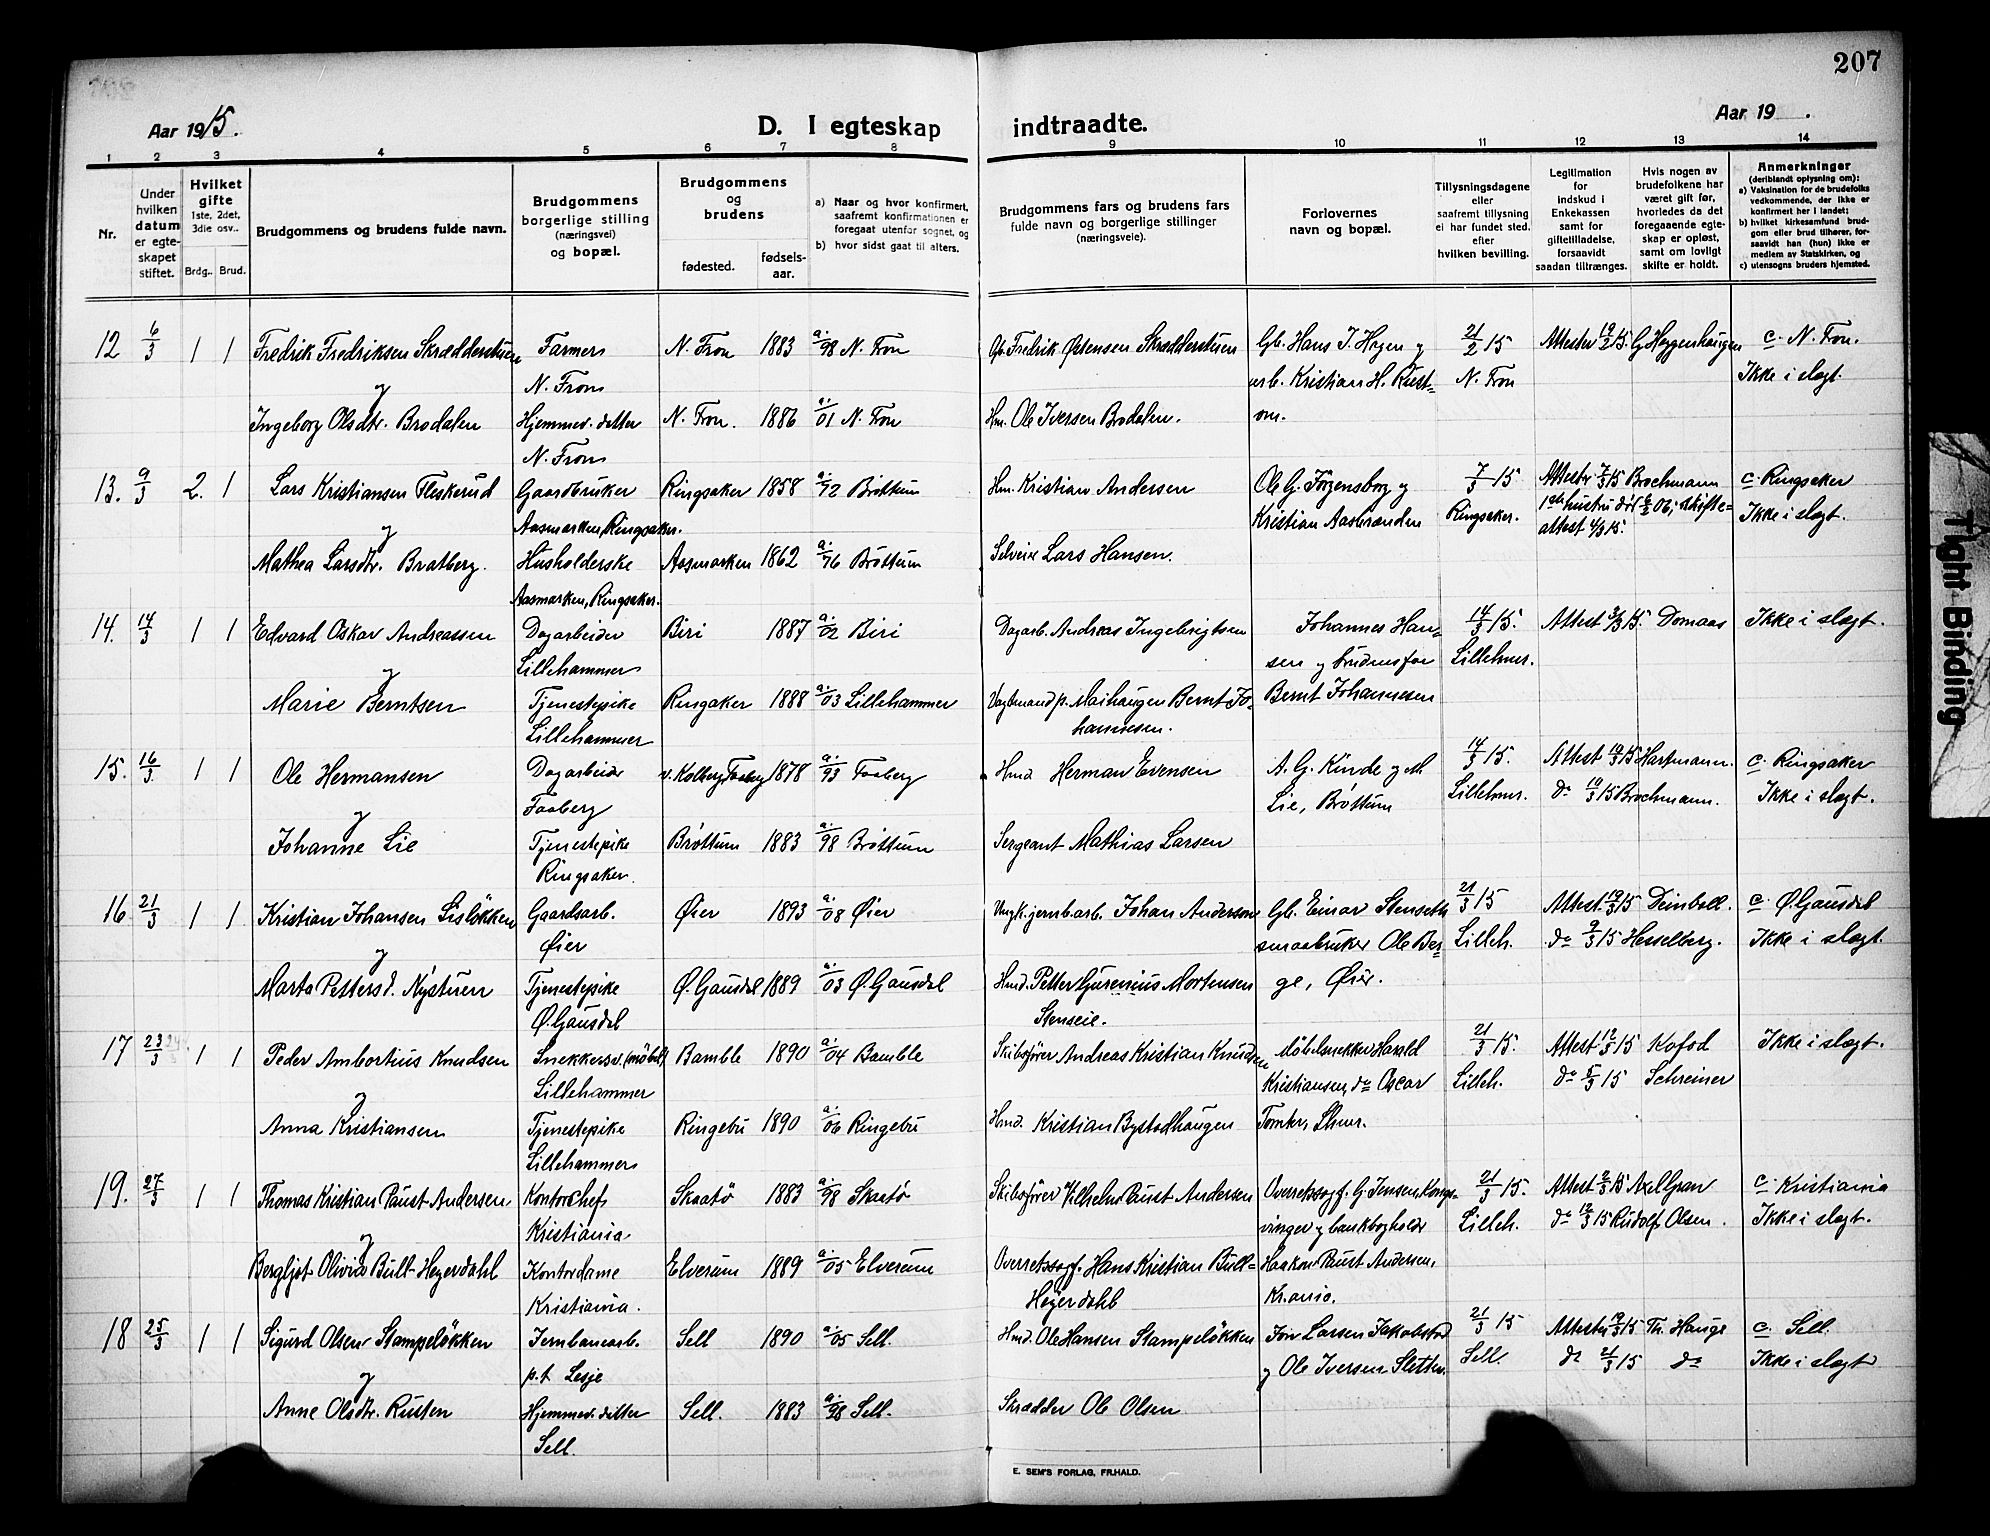 207
Aar 1915.
D. I egteskap
indtraadte.
Aar 19 .
1 2 3 4 5 6 7 8 9 10 11 12 13 14
Nr.
Under hvilken datum er egteskapet stiftet.
Hvilket gifte 1ste, 2det, 3die osv..
Brdg.. Brud.
Brudgommens og brudens fulde navn.
Brudgommens borgerlige stilling (næringsvei) og bopæl.
Brudgommens og brudens
fødested. fødselsaar.
a) Naar og hvor konfirmert, saafremt konfirmationen er foregaat utenfor sognet, og
b) hvor sidst gaat til alters.
Brudgommens fars og brudens fars fulde navn og borgerlige stillinger (næringsveie).
Forlovernes navn og bopæl.
Tillysningsdagene eller saafremt tillysning ei har fundet sted, efter hvilken bevilling.
Legitimation for indskud i Enkekassen samt for giftetilladelse, forsaavidt saadan tiltrænges.
Hvis nogen av brudefolkene har været gift før, hvorledes da det foregaaende egteskap er opløst, samt om lovligt skifte er holdt.
Anmerkninger (deriblandt oplysning om):
a) Vaksination for de brudefolks vedkommende, der ikke er konfirmert her i landet;
b) hvilket kirkesamfund brudgom eller brud tilhører, forsaavidt han (hun) ikke er medlem av Statskirken, og
c) utensogns bruders hjemsted.
12 6/3 1 1 Fredrik Fredriksen Skrædderstuen Farmer N. Fron 1883 a. 98 N. Fron Gb. Fredrik Østensen Skrædderstuen Gb. Hans J. Hagen og 21/2 15 Attester 19/2 15. G Heggenhaugen c. N. Fron.
og N. Fron Kristian H. N. Fron Ikke i slegt.
Ingeborg Olsdtr. Brodalen Hjemmev. datter N. Fron. 1886 a. 01 N. Fron Hm. Ole Iversen Brodalen. om.
N. Fron
13. 9/3 2. 1 Lars Kristiansen Fleskerud Gaardbruker Ringsaker 1858 a. 72 Brøttum Hm. Kristian Andersen Ole G. Jørgensborg og 7/3 15 Attester 7/3 15 Brochmann c. Ringsaker
og Aasmarken, Ringsaker. Kristian Aasbrænden Ringsaker. 1ste hustru død 6/2 06, skifte- Ikke i slegt.
attest 4/3 15.
Mathea Larsdtr. Bratberg. Husholderske Aasmarken 1862 a. 76 Brøttum Selveier Lars Hansen.
Aasmarken, Ringsaker.
14. 14/3 1 1 Edvard Oskar Andreassen Dagarbeider Biri 1887 a. 02 Biri Dagarb. Andreas Ingebrigtsen Johannes Han- 14/3 15. Attest 3/3 15. Domaas Ikke i slegt.
og Lillehammer sen og brudens far Lillehmr.
Marie Berntsen Tjenestepike Ringsaker 1888 a. 03 Lillehammer Vagtmand p. Maihaugen Bernt Jo- Bernt Johannesen
Lillehammer hannesen.
15. 16/3 1 1 Ole Hermansen Dagarbeider v. Kolberg, Faaberg 1878 a. 93 Faaberg Hmd Herman Evensen A. G. Kinde og M. 14/3 15. Attest 10/3 15 Hartmann. c. Ringsaker
og Faaberg Lie, Brøttum Lillehmr. do 10/3 15 Brochmann. Ikke i slegt.
Johanne Lie Tjenestepike Brøttum 1883 a. 98 Brøttum Sergeant Mathias Larsen
Ringsaker.
16 21/3 1 1 Kristian Johansen Lisløkken Gaardsarb. Øier 1893 a. 08 Øier jernb.arb. Johan Anderson Gb. Einar Stenseth 21/3 15 Attest. 19/3 15 Deinboll. c. Ø. Gausdal
og Øier smaabruker Ole Ber- Lilleh. do 9/3 15 Hesselberg. Ikke i slegt.
Marta Pettersd. Nystuen Tjenestepike Ø. Gausdal 1889 a. 03 Ø. Gausdal Hmd. Petter Gurenius Mortensen ge, Øier.
Ø. Gausdal Stenseie.
17 23/3 1 1 Peder Ambortius Knudsen Snekkersv. (møbel) Bamble 1890 a. 04 Bamble Skibsfører Andreas Kristian Knudsen Møbelsnekker Harald 21/3 15. Attest. 12/3 15 Kofod Ikke i slegt.
og Lillehammer Kristiansen, do Oscar Lilleh. do 5/3 15 Schreiner
Anna Kristiansen Tjenestepike Ringebu 1890 a. 06 Ringebu Hmd. Kristian Bystadhaugen Tomter, Lhmr.
Lillehammer
19. 27/3 1 1 Thomas Kristian Paust Andersen, Kontorchef Skaatø 1883 a. 98 Skaatø Skibsfører Vilhelm Paust Andersen Overretssagf. G. Jensen, Kongs- 21/3 15. Attest 2/3 15 Axel Gran c. Kristiania
og Kristiania vinger og bankbogholder Lilleh. do 12/3 15 Rudolf Olsen. Ikke i slegt.
Bergljot Olivia Bull Heyerdahl Kontordame Elverum 1889 a. 05 Elverum Overretssagf. Hans Kristian Bull- Haakon Paust Andersen,
Kristiania. Heyerdahl Kr.ania.
18 25/3 1 1 Sigurd Olsen Stampeløkken Jernbanearb. Sell 1890 a. 05 Sell. Hmd. Ole Hansen Stampeløkken Jon Larsen Jakobstad 21/3 15 Attester 19/3 15 Th. Hauge c. Sell.
og p.t. Lesje og Ole Iversen Sletten. Sell. do 21/3 15 do Ikke i slegt
Anne Olsdtr. Rusten Hjemmev. datter Sell. 1883 a. 98 Sell. Skrædder Ole Olsen
Sell.
E. SEM'S FORLAG, FR.HALD.
Tight Binding